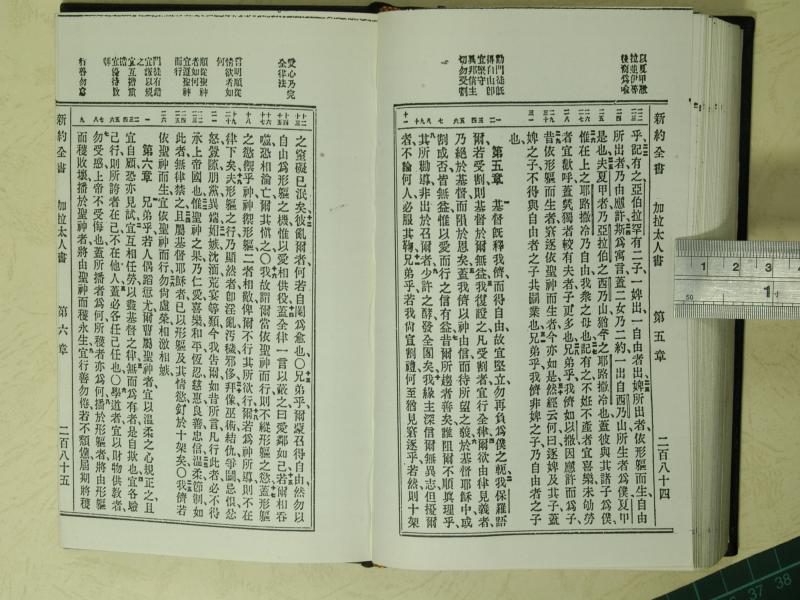 新約全書 加拉太人書 第五章 二百八十四
以夏甲撒
拉並伊等
後裔爲喻
勸門徒旣
得自由卽
宜堅守
異邦信主
切勿受割
乎記有之亞伯拉罕有二子一婢出一自由者出婢所出者依形軀而生自由
所出者乃由應許斯爲寓言蓋二女乃二約一出自西乃山所生者爲僕夏甲
是也夫夏甲者乃亞拉伯之西乃山猶今之耶路撒冷也蓋彼與其諸子爲僕
惟在上之耶路撒冷乃自由我衆之母也記有之不妊不產者宜喜樂未劬勞
者宜歡呼蓋煢獨者較有夫者子更多也兄弟乎我儕如以撒因應許而爲子
昔依形軀而生者窘逐依聖神而生者今亦如是然經云何曰逐婢及其子蓋
婢之子不得與自由者之子共嗣業也兄弟乎我儕非婢之子乃自由者之子
也
第五章 基督旣釋我儕而得自由故宜堅立勿再負爲僕之軛我保羅語
爾若受割則基督於爾無益我復證之凡受割者宜行全律爾欲由律見義者
乃絕於基督而隕於恩矣蓋我儕以神由信而待所望之義於基督耶穌中或
割或否皆無益惟以愛而行之信有益昔爾所趨者善矣誰阻爾不順眞理乎
其所勸導非出於召爾者少許之酵發全團矣我緣主深信爾無異志但擾爾
者不論何人必服其鞫兄弟乎若我尙宣割禮何至猶見窘逐乎若然則十架
愛心乃完
全律法
當明順從
情欲者如
何
順從聖神
者如何
宜遵聖神
而行
門徒有錯
宜謀以規
宜互擔重
宜優待教
行善勿怠
之窒礙已泯矣彼亂爾者何若自閹爲愈也〇兄弟乎爾蒙召得自由然勿以
自由爲形軀之機惟以愛相供役蓋全律一言以蔽之曰愛鄰如己若爾相吞
噬恐相淪亡爾其愼之〇我故謂爾當依聖神而行則不縱形軀之慾蓋形軀
之慾觀乎神神禦形軀二者相敵俾爾不行其所欲行爾若爲神所導則不在
律下矣夫形軀之行乃顯然者卽淫亂汚穢邪侈拜像巫術結仇爭鬬忌恨忿
怒釁隙朋黨異端媢嫉沈湎荒宴等類今我告爾如昔所言凡行此者必不得
承上帝國也惟聖神之果乃仁愛喜樂和平恆忍慈惠良善忠信溫柔節制如
此者無律禁之且屬基督耶穌者已以形軀及其情慾釘於十架矣〇我儕若
依聖神而生宜依聖神而行勿尙虛榮相激相嫉
第六章 兄弟乎若人偶蹈愆尤爾曹屬聖神者宜以溫柔之心規正之且
宜自顧恐亦見試宜互相任勞以盡基督之律無而爲有者是自欺也宜各驗
己行則所誇者在己不在他人蓋必各任己任也〇學道者宜以財物供教者
勿受惑上帝不受侮也蓋所播者爲何所穫者亦爲何播於形軀者將由形軀
而穫敗壞播於聖神者將由聖神而穫永生宜行善勿倦若不頹憊屆期將穫
新約全書 加拉太人書 第六章 二百八十五